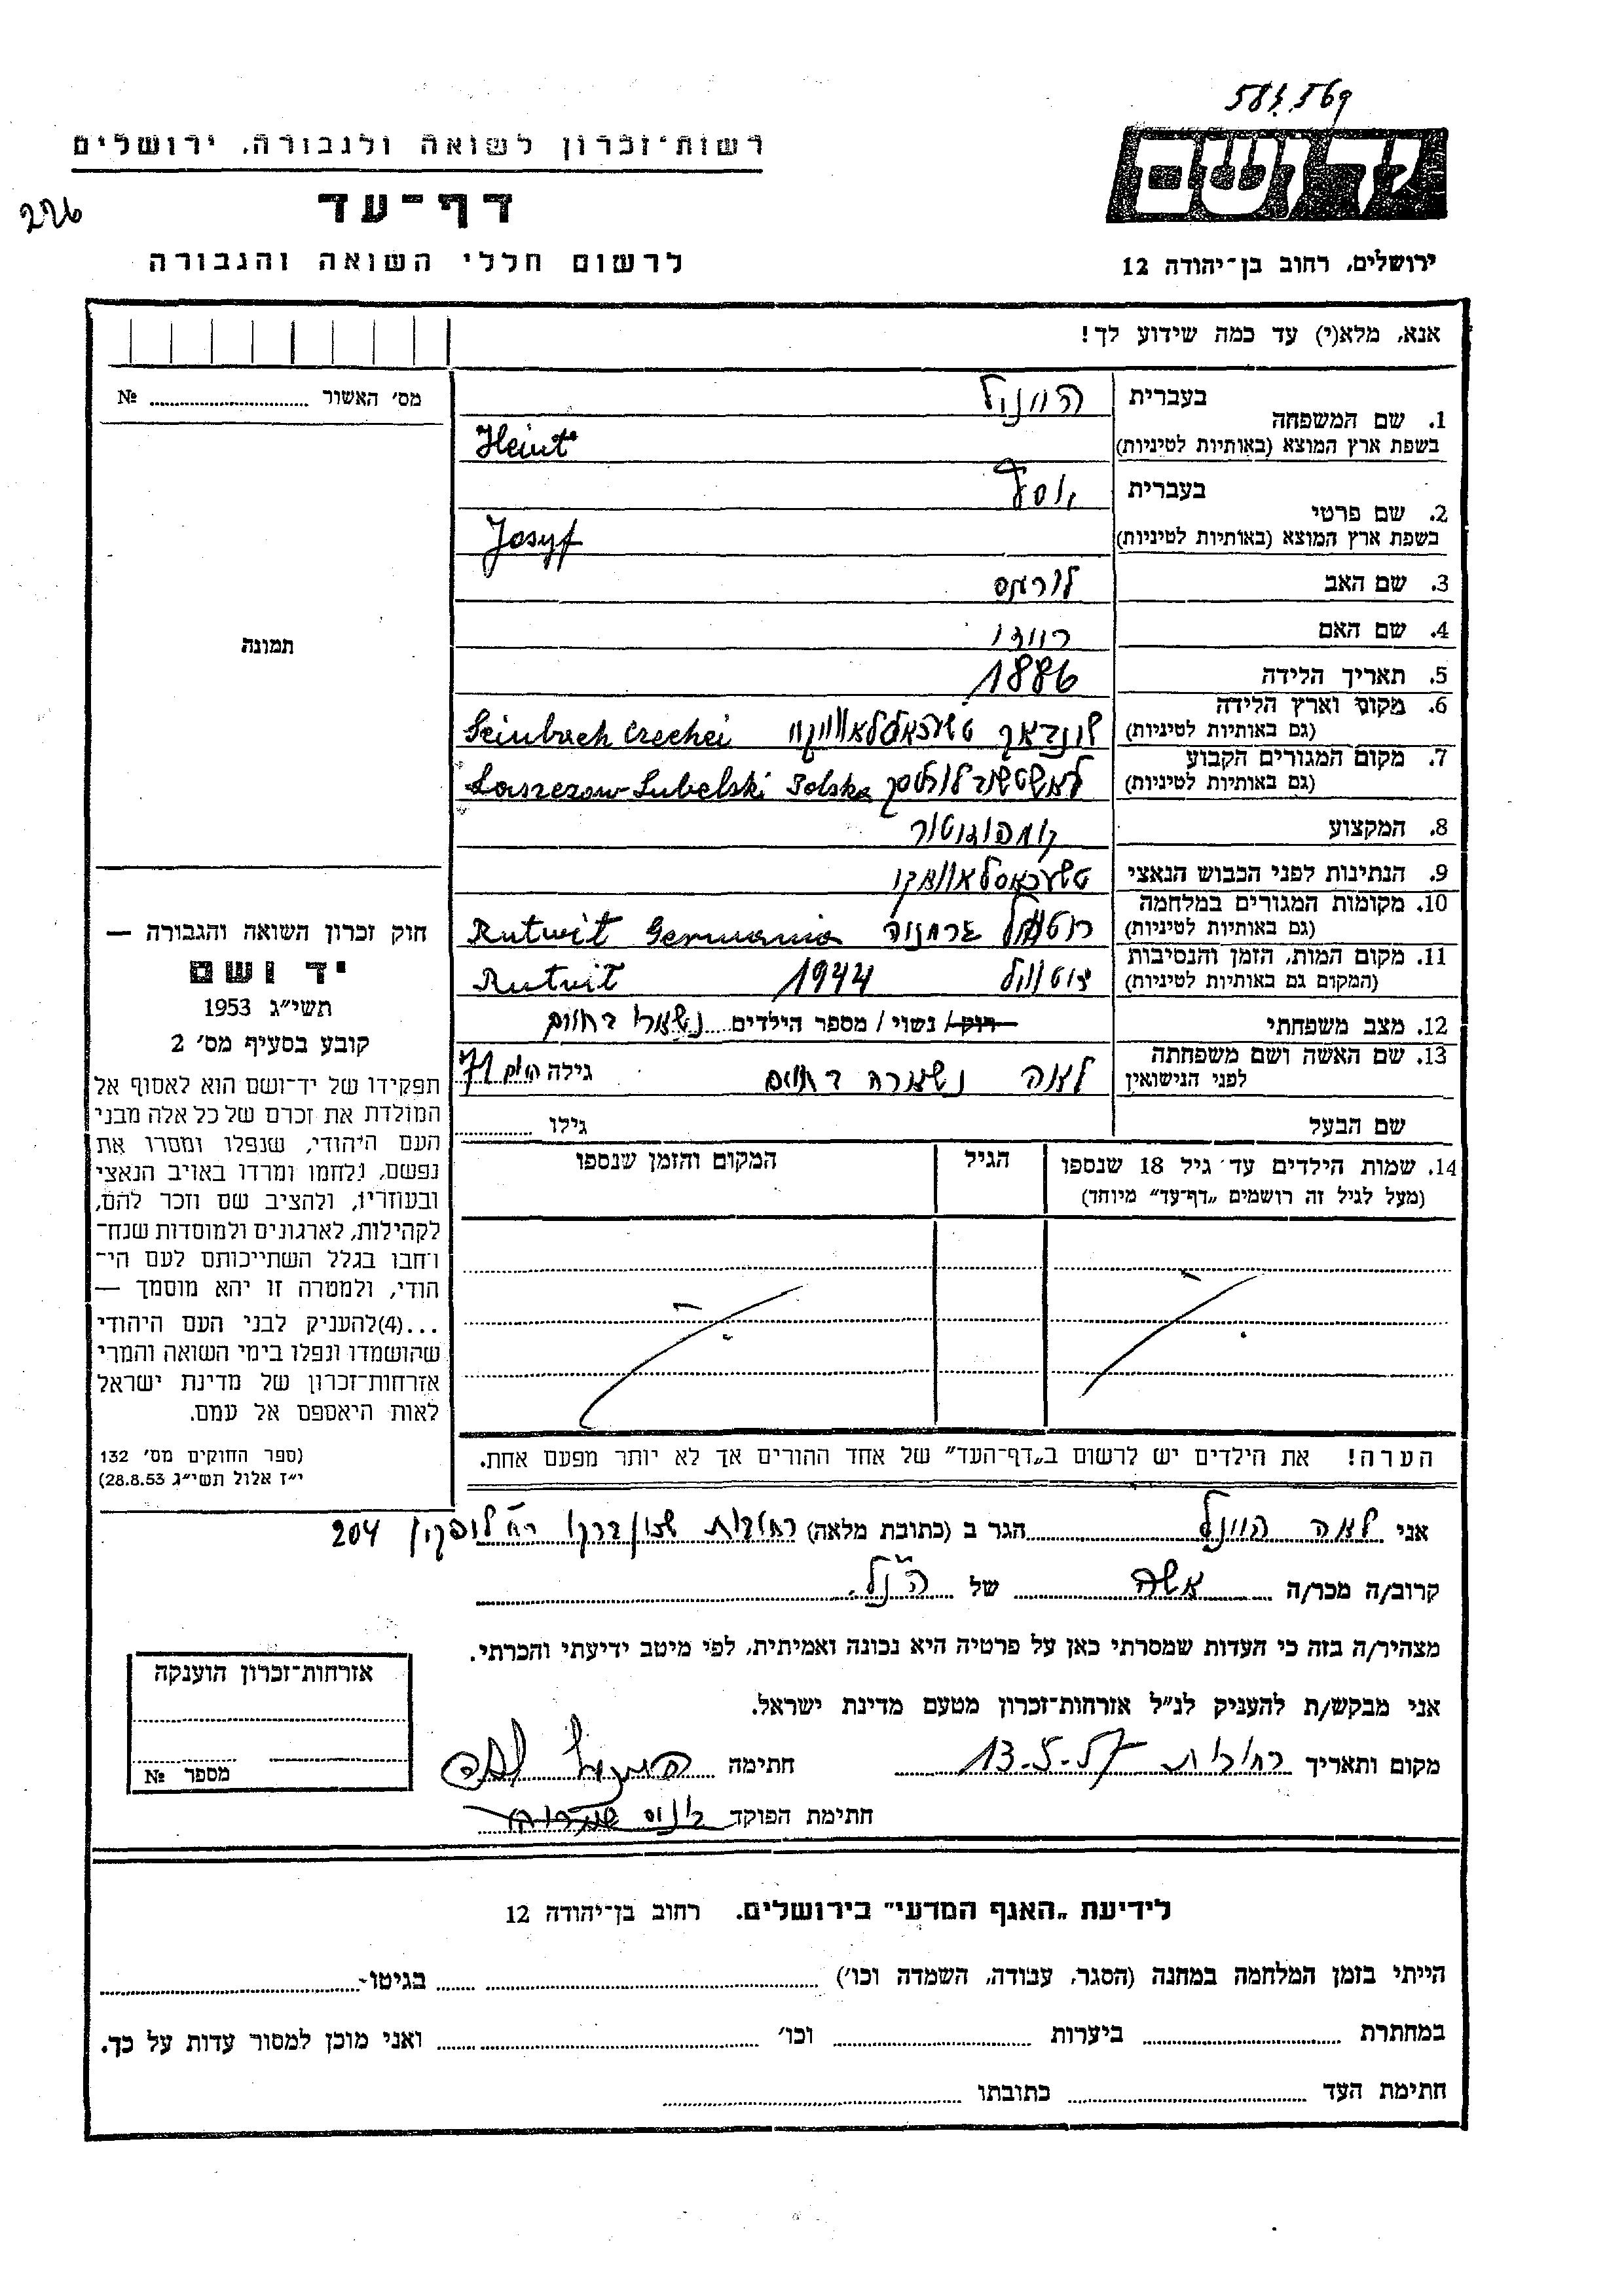 581.569
יד ושם
רשות־זכרון לשואה ולגבורה, ירושלים
226
דף־עד
ירושלים, רחוב בן־יהודה 12
לרשום חללי השואה והגבורה
אנא, מלא(י) עד כמה שידוע לך!
מס׳ האשור № 
תמונה
חוק זכרון השואה והגבורה —
יד ושם
תשי״ג 1953
קובע בסעיף מס׳ 2
תפקידו של יד־ושם הוא לאסוף אל
המולדת את זכרם של כל אלה מבני
העם היהודי, שנפלו ומסרו את
נפשם, נלחמו ומרדו באויב הנאצי
ובעוזריו, ולהציב שם וזכר להם,
לקהילות, לארגונים ולמוסדות שנח־
רחבו בגלל השתייכותם לעם הי־
הודי, ולמטרה זו יהא מוסמך —
...(4)להעניק לבני העם היהודי
שהושמדו ונפלו בימי השואה והמרי
אזרחות־זכרון של מדינת ישראל
לאות היאספם אל עמם.
(ספר החוקים מס׳ 132
י״ז אלול תשי״ג 28.8.53)
1. שם המשפחה
בעברית
בשפת ארץ המוצא (באותיות לטיניות) Heint
2. שם פרטי
בעברית יוסף
בשפת ארץ המוצא (באותיות לטיניות) Josyf
3. שם האב
4. שם האם
5. תאריך הלידה 1886
6. מקום וארץ הלידה
(גם באותיות לטיניות) Seinbach Czechei
7. מקום המגורים הקבוע
(גם באותיות לטיניות) Laszczow-Lubelski Polska
8. המקצוע
9. הנתינות לפני הכבוש הנאצי
10. מקומות המגורים במלחמה
(גם באותיות לטיניות) גרמניה Rutwit Germania
11. מקום המות, הזמן והנסיבות
(המקום גם באותיות לטיניות) 1944 Rutwit
12. מצב משפחתי רוק/ נשוי / מספר הילדים נשארו בחיים
13. שם האשה ושם משפחתה
לפני הנישואין לאה נשארה בחיים גילה היום 71
שם הבעל גילו
14. שמות הילדים עד גיל 18 שנספו הגיל המקום והזמן שנספו
(מעל לגיל זה רושמים „דף־עד״ מיוחד)
הערה! את הילדים יש לרשום ב„דף־העד״ של אחד ההורים אך לא יותר מפעם אחת.
אני לאה הגר ב (כתובת מלאה) רחובות 204
קרוב/ה מכר/ה אשה של הנ״ל
מצהיר/ה בזה כי העדות שמסרתי כאן על פרטיה היא נכונה ואמיתית, לפי מיטב ידיעתי והכרתי.
אני מבקש/ת להעניק לנ״ל אזרחות־זכרון מטעם מדינת ישראל.
מקום ותאריך רחובות 13-5-57 חתימה לאה
חתימת הפוקד
אזרחות־זכרון הוענקה
מספר №
לידיעת „האגף המדעי״ בירושלים. רחוב בן־יהודה 12
הייתי בזמן המלחמה במחנה (הסגר, עבודה, השמדה וכו׳) בגיטו-
במחתרת ביערות וכו׳ ואני מוכן למסור עדות על כך.
חתימת העד כתובתו